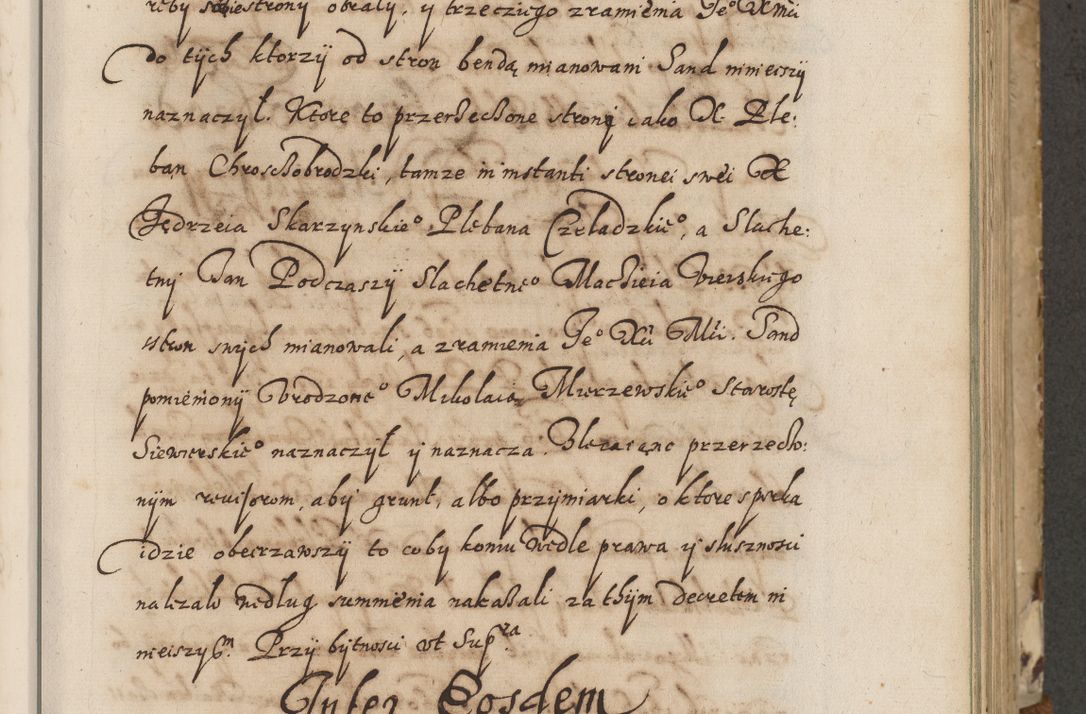 reby sobie strony obrały, y trzecziego zramienia Je° Xmci
do tych ktorzy od stron bendą mianowani Sand ninieiszy
naznaczył. Ktore to przerzeczone strony iako X. Ple:
ban Chroszczobrodzki, tamze in instanti stronei swei X
Jędrzeia Skarzynskie° Plebana Czeladzkie°, a Slache:
tny Jan Podczaszy Slachetne° Macieia
stron swych mianowali, a zramienia Je° Xci Mci. Sand
pomieniony Urodzone° Mikolaia Mierzewskie° Starostę
Siewierskie° naznaczył y naznacza. Zlecaiąnc przerzeczo:
nym revisorom, aby grunt, albo przymiarki, o ktore sprzka
idzie obeirzawszy to coby komu wedle prawa y słusznosci
nalezalo wedlug summienia nakazali za thym decretem ni
nieiszy^m. Przy bytnosci ut Sup^ra.
Inter Eosdem